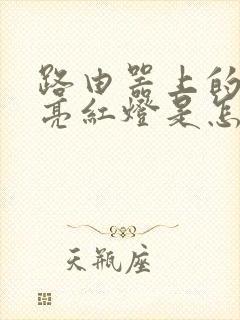 路由器上的
亮红燈是怎
天瓶座